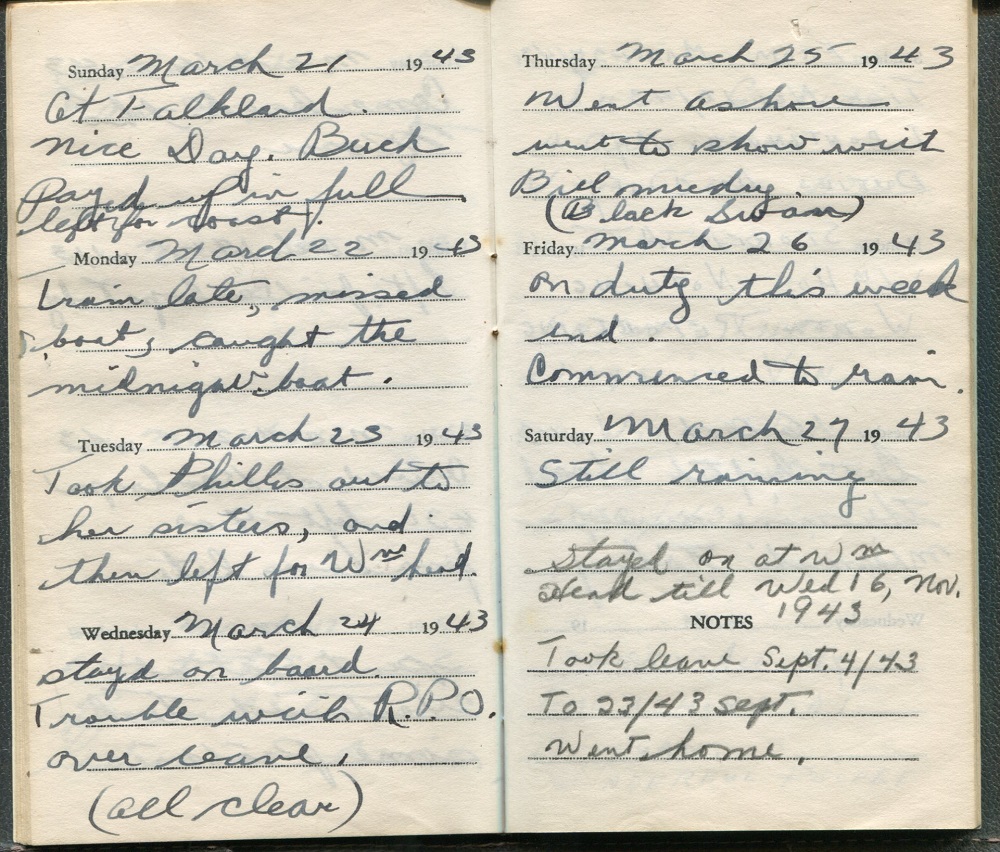 Sunday March 21 1943
At Falkland.
nice Day. Buck
Payed up in full
left for coast.
Monday March 22 1943
Train late, missed
boat, caught the
midnight boat.
Tuesday March 23 1943
Took Phillis out to
her sisters, and
then left for Wm head.
Wednesday March 24 1943
stayd on board.
Trouble with R.P.O.
over leave,
(all clear)
Thursday March 25 1943
Went ashore
went to show with
Bill
(Black Swan)
Friday March 26 1943
on duty this week
end.
Commenced to rain.
Saturday March 27 1943
Still raining
Stayed on at Wm
Head till Wed 16, Nov.
1943
NOTES
Took leave Sept. 4/43
To 23/43 sept.
Went home.